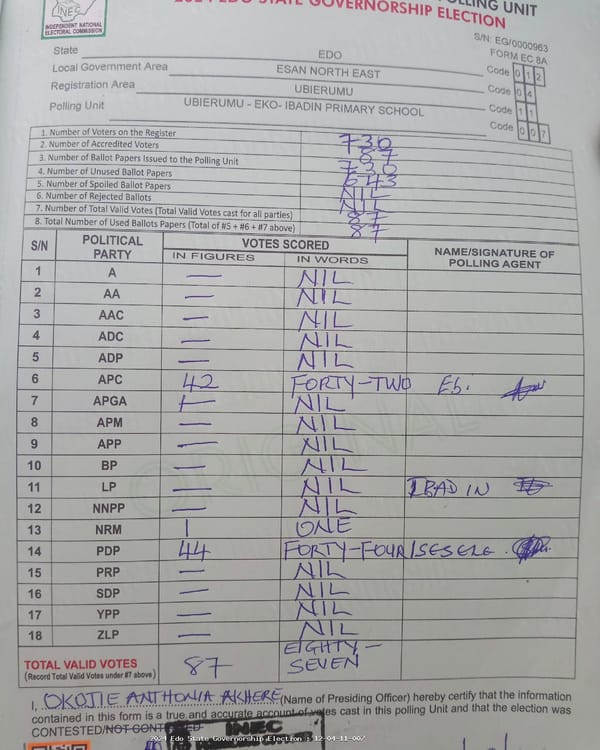 POLLING UNIT
2024 EDO STATE GOVERNORSHIP ELECTION
INEC
INDEPENDENT NATIONAL
ELECTORAL COMMISSION
S/N: EG/0000963
FORM EC 8A
State EDO Code 0 1 2
Local Government Area ESAN NORTH EAST Code 0 4
Registration Area UBIERUMU Code 1 1
Polling Unit UBIERUMU - EKO- IBADIN PRIMARY SCHOOL Code 0 0 7
1. Number of Voters on the Register 730
2. Number of Accredited Voters 87
3. Number of Ballot Papers Issued to the Polling Unit 730
4. Number of Unused Ballot Papers 643
5. Number of Spoiled Ballot Papers NIL
6. Number of Rejected Ballots NIL
7. Number of Total Valid Votes (Total Valid Votes cast for all parties) 87
8. Total Number of Used Ballots Papers (Total of #5 + #6 + #7 above) 87
S/N POLITICAL PARTY VOTES SCORED NAME/SIGNATURE OF POLLING AGENT
IN FIGURES IN WORDS
1 A — NIL
2 AA — NIL
3 AAC — NIL
4 ADC — NIL
5 ADP — NIL
6 APC 42 FORTY-TWO
7 APGA — NIL
8 APM — NIL
9 APP — NIL
10 BP — NIL
11 LP — NIL IBADIN
12 NNPP — NIL
13 NRM 1 ONE
14 PDP 44 FORTY-FOUR
15 PRP — NIL
16 SDP — NIL
17 YPP — NIL
18 ZLP — NIL
TOTAL VALID VOTES 87 EIGHTY-SEVEN
(Record Total Valid Votes under #7 above)
I, OKOJIE ANTHONIA AKHERE (Name of Presiding Officer) hereby certify that the information
contained in this form is a true and accurate account of votes cast in this polling Unit and that the election was
CONTESTED/NOT CONTESTED
INEC
2024 Edo State Governorship Election : 12-04-11-007